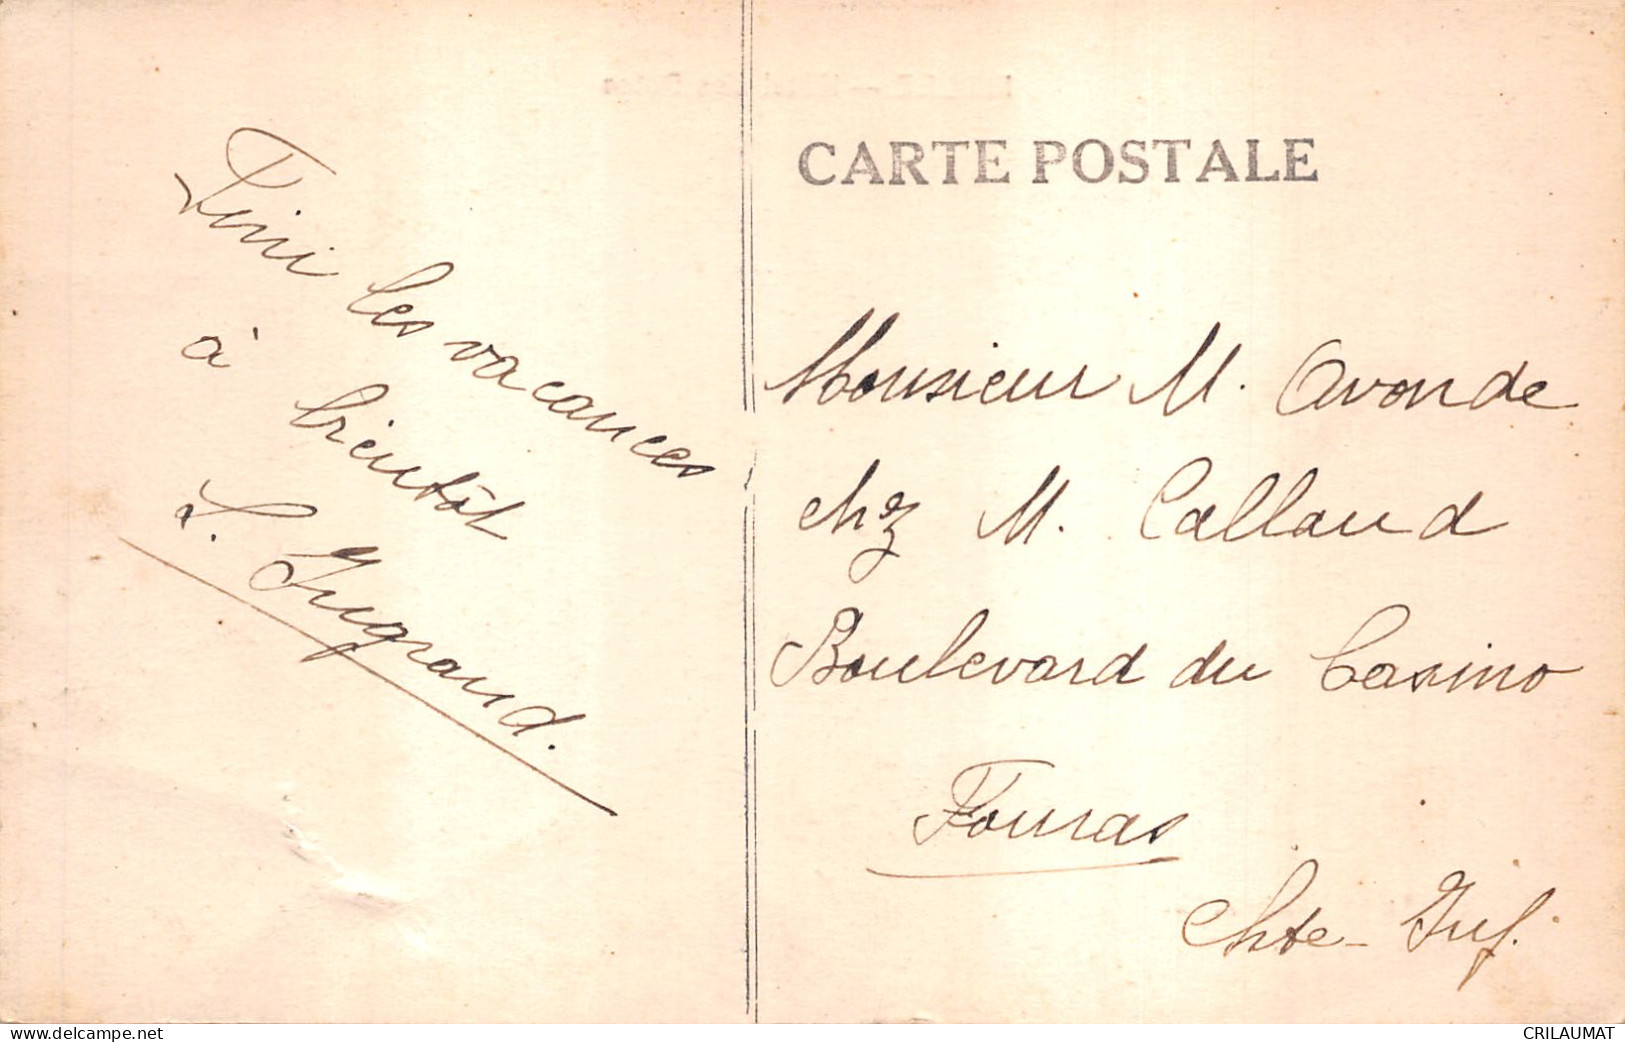 CARTE POSTALE
Fini les vacances
à bientôt
S. Ingrand.
Monsieur M. Avonde
chez M. Calland
Boulevard du Casino
Fouras
Chte-Inf.
www.delcampe.net
CRILAUMAT